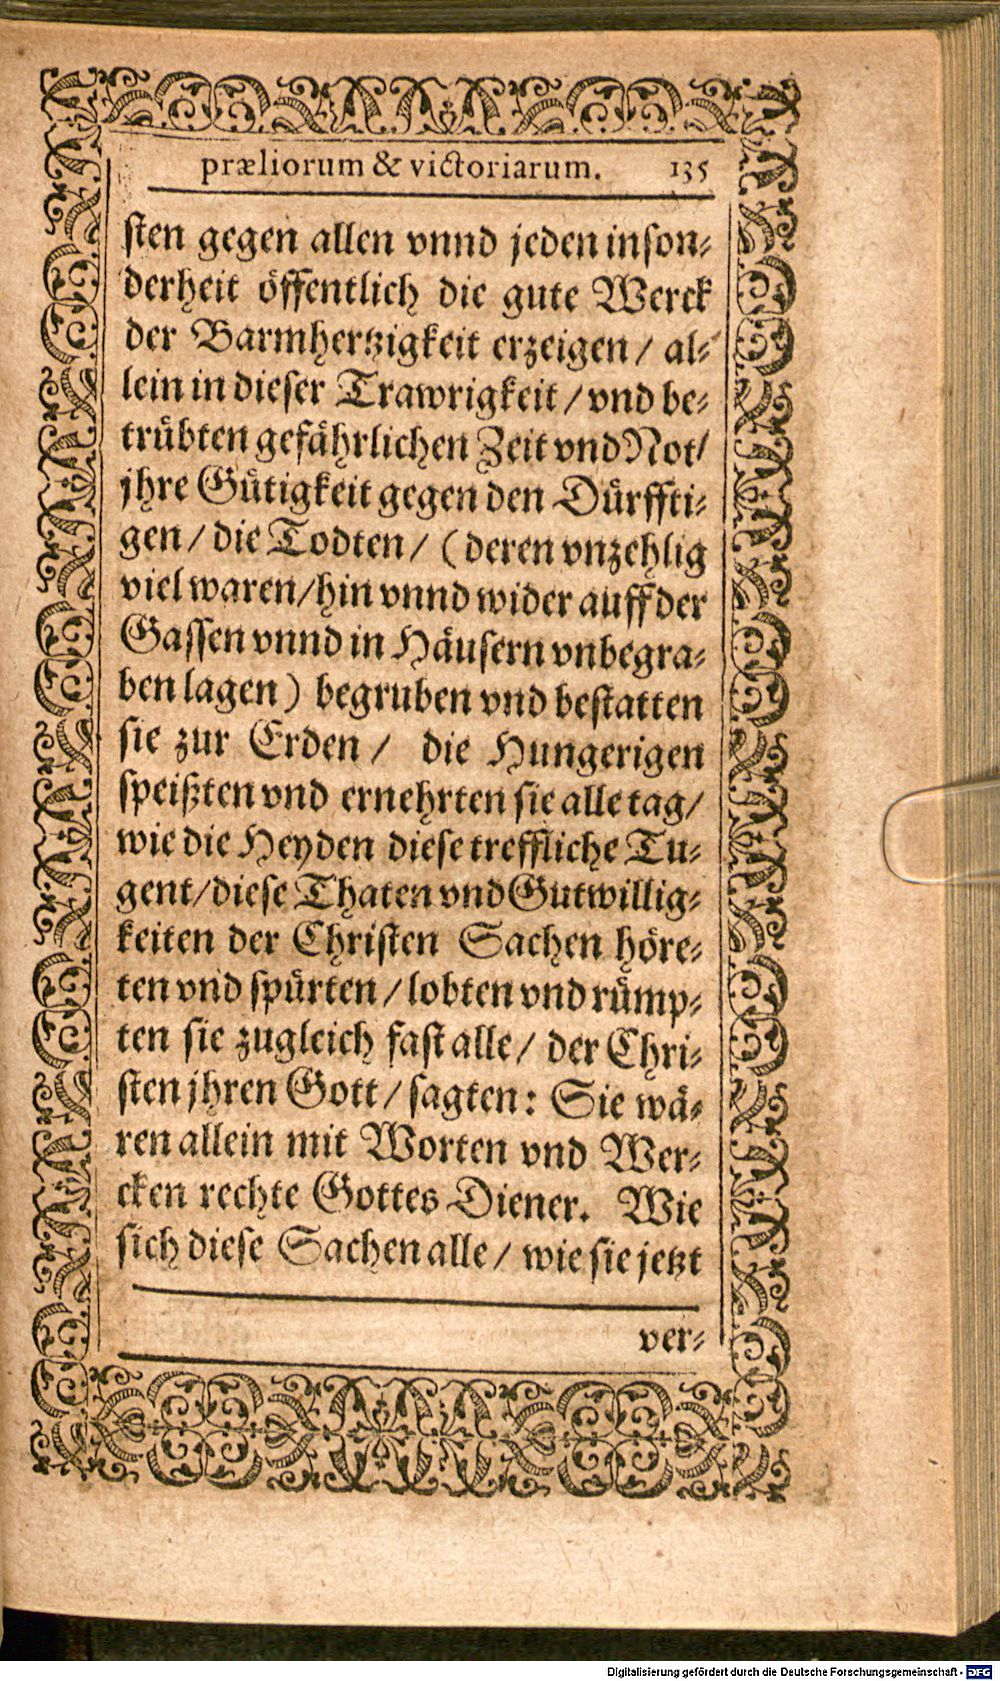 præliorum & victoriarum. 135
ſten gegen allen vnnd jeden inſon⸗
derheit öffentlich die gute Werck
der Barmhertzigkeit erzeigen / al⸗
lein in dieſer Trawrigkeit / vnd be⸗
trübten gefährlichen Zeit vnd Not/
jhre Gütigkeit gegen den Dürffti⸗
gen / die Todten / (deren vnzehlig
viel waren/hin vnnd wider auff der
Gaſſen vnnd in Häuſern vnbegra⸗
ben lagen) begruben vnd beſtatten
ſie zur Erden / die Hungerigen
ſpeißten vnd ernehrten ſie alle tag/
wie die Heyden dieſe treffliche Tu⸗
gent/dieſe Thaten vnd Gutwillig⸗
keiten der Chriſten Sachen höre⸗
ten vnd ſpürten / lobten vnd rümp⸗
ten ſie zugleich faſt alle / der Chri⸗
ſten jhren Gott / ſagten: Sie wä⸗
ren allein mit Worten vnd Wer⸗
cken rechte Gottes Diener. Wie
ſich dieſe Sachen alle / wie ſie jetzt
ver⸗
Digitalisierung gefördert durch die Deutsche Forschungsgemeinschaft - DFG